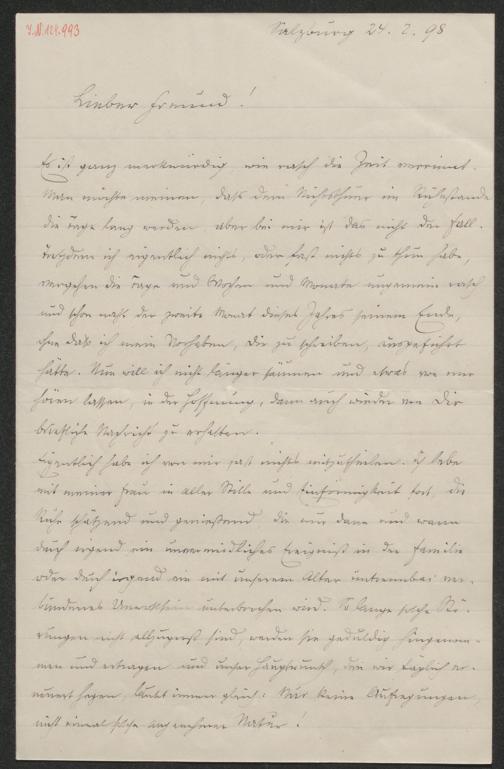 I.N. 124.993
Salzburg 24. 2. 98
Lieber Freund!
Es ist ganz merkwürdig, wie rasch die Zeit verrinnt.
Man möchte meinen, daß dem Nichtsthuer im Ruhestande
die Tage lang werden, aber bei mir ist das nicht der Fall.
Trotzdem ich eigentlich nichts, oder fast nichts zu thun habe,
vergehen die Tage und Wochen und Monate ungemein rasch
und schon naht der zweite Monat dieses Jahres seinem Ende,
ohne daß ich mein Vorhaben, Dir zu schreiben, ausgeführt
hätte. Nun will ich nicht länger säumen und etwas von mir
hören lassen, in der Hoffnung, dann auch wieder von Dir
briefliche Nachricht zu erhalten.
Eigentlich habe ich von mir fast nichts mitzutheilen. Ich lebe
mit meiner Frau in aller Stille und Einförmigkeit fort, die
Ruhe schätzend und genießend, die nur dann und wann
durch irgend ein unvermeidliches Ereigniß in der Familie
oder durch irgend ein mit unserem Alter untrennbar ver-
bundenes Unwohlsein unterbrochen wird. So lange solche Stö-
rungen nicht allzu ernst sind, werden sie geduldig hingenom-
men und ertragen und unser Hauptwunsch, den wir täglich er-
neuert hegen, lautet immer gleich: Nur keine Aufregungen,
nicht einmal solche angenehmer Natur!